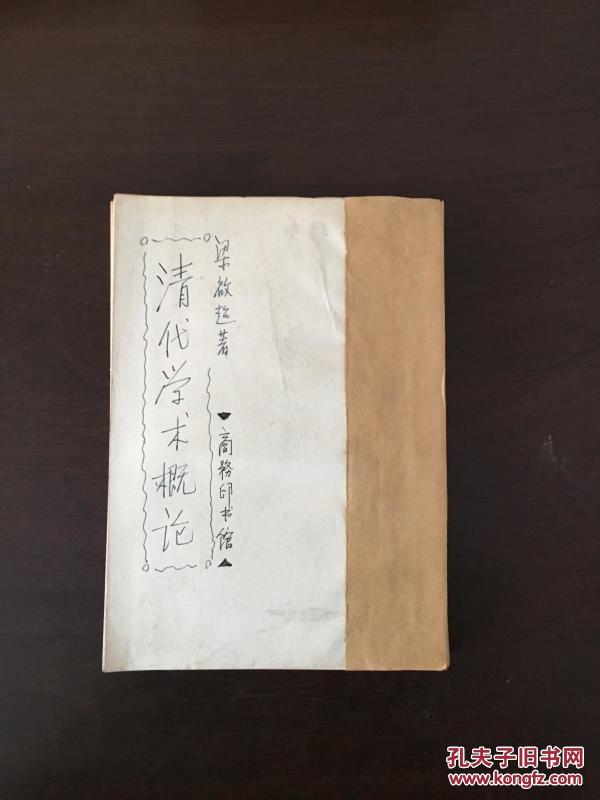 梁啟超著
清代学术概论
商務印书馆
孔夫子旧书网
www.kongfz.com